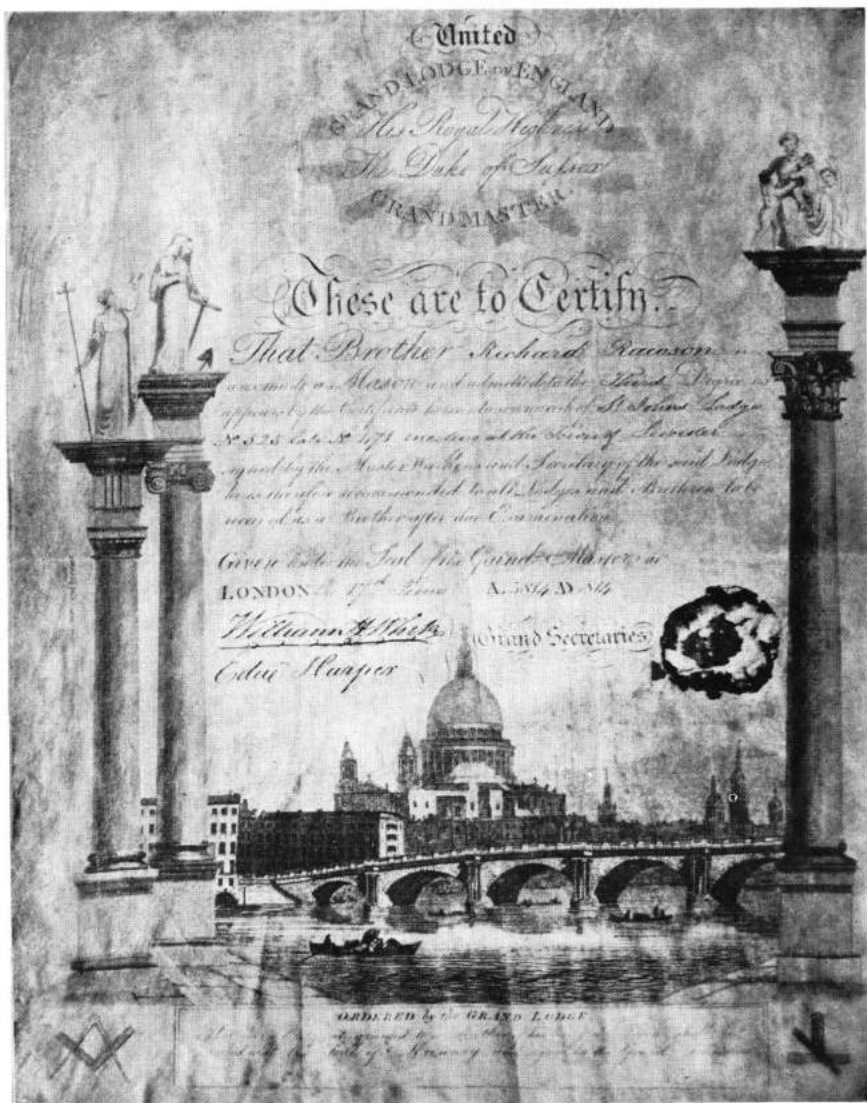 United
GRAND LODGE OF ENGLAND
His Royal Highness
The Duke of Sussex
GRAND MASTER.
These are to Certify..
That Brother Richard Rawson
was made a Mason and admitted to the Third Degree as
appears by the Certificate hereunto of St Johns Lodge
No 525 late No 471 meeting at the Town of Leicester
signed by the Master Wardens and Secretary of the said Lodge
he is therefore recommended to all Lodges and Brethren to be
received as a Brother after due Examination
Given under the Seal of the Grand Master at
LONDON 17th A. 5814 AD 1814
William H White Grand Secretaries
Edwd Harper
ORDERED by the GRAND LODGE